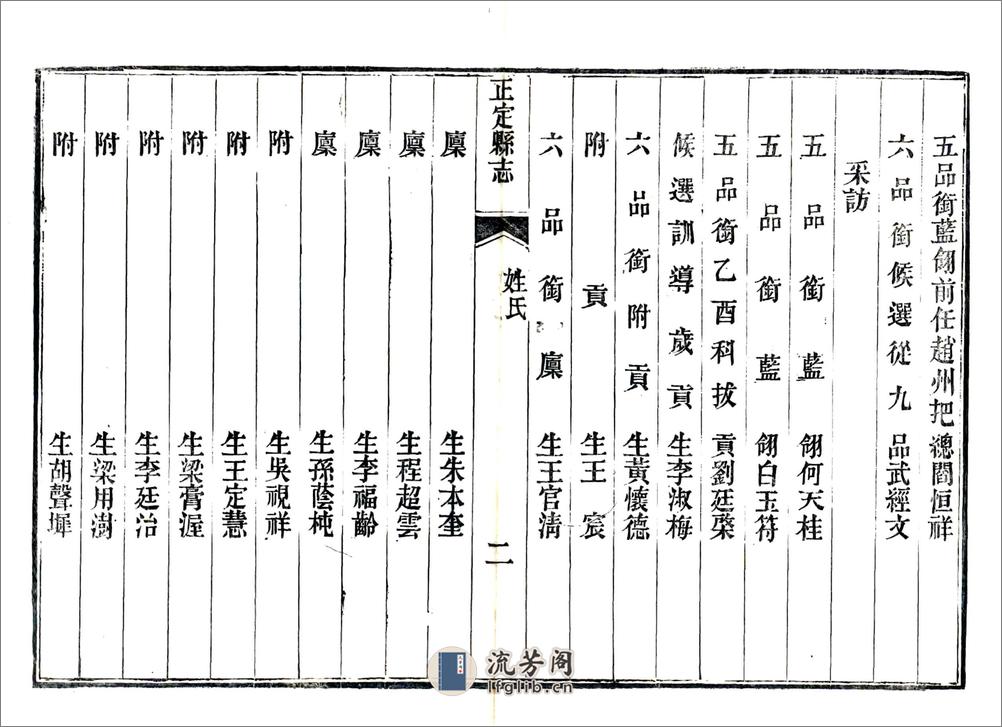 五品銜藍翎前任趙州把總閻恒祥
六品銜候選從九品武經文
采訪
五品銜藍翎何天桂
五品銜藍翎白玉符
五品銜乙酉科拔貢劉廷棨
候選訓導歲貢生李淑梅
六品銜附貢生黃懷德
附貢生王宸
六品銜廩生王官淸
正定縣志
姓氏
二
廩生朱本奎
廩生程超雲
廩生李福齡
廩生孫蔭杶
附生吳視祥
附生王定慧
附生梁膏渥
附生李廷治
附生梁用澍
附生胡聲墀
流芳阁
lfglib.cn